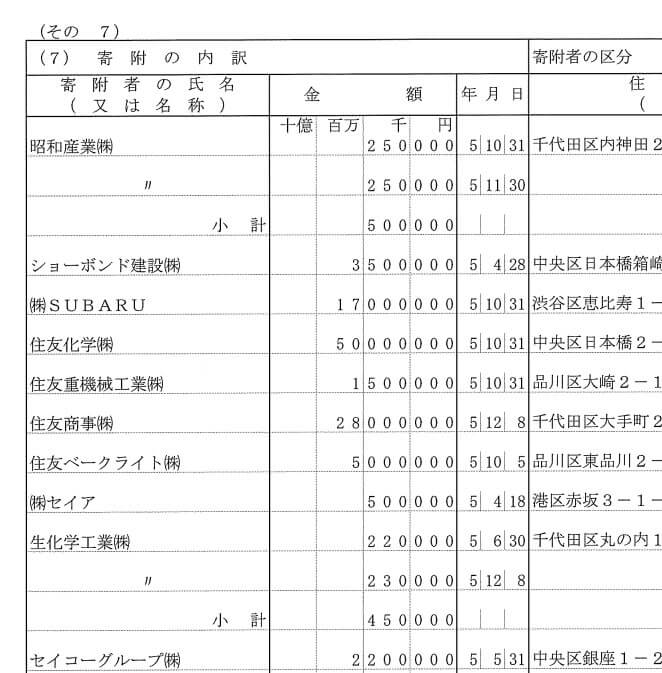 (その 7)
(7) 寄附の内訳 寄附者の区分
寄附者の氏名 金額 年月日 住
(又は名称) (
十億 百万 千 円
昭和産業㈱ 250000 5 10 31 千代田区内神田2
〃 250000 5 11 30
小計 500000
ショーボンド建設㈱ 3500000 5 4 28 中央区日本橋箱崎
㈱SUBARU 17000000 5 10 31 渋谷区恵比寿1-
住友化学㈱ 50000000 5 10 31 中央区日本橋2-
住友重機械工業㈱ 1500000 5 10 31 品川区大崎2-1
住友商事㈱ 28000000 5 12 8 千代田区大手町2
住友ベークライト㈱ 5000000 5 10 5 品川区東品川2-
㈱セイア 500000 5 4 18 港区赤坂3-1-
生化学工業㈱ 220000 5 6 30 千代田区丸の内1
〃 230000 5 12 8
小計 450000
セイコーグループ㈱ 2200000 5 5 31 中央区銀座1-2